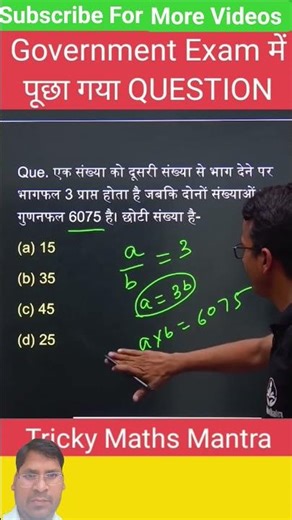 Subscribe For More Videos
Government Exam में
पूछा गया QUESTION
Que. एक संख्या को दूसरी संख्या से भाग देने पर
भागफल 3 प्राप्त होता है जबकि दोनों संख्याओं
गुणनफल 6075 है। छोटी संख्या है-
(a) 15
(b) 35
(c) 45
(d) 25
a/b = 3
a = 3b
a×b = 6075
Tricky Maths Mantra